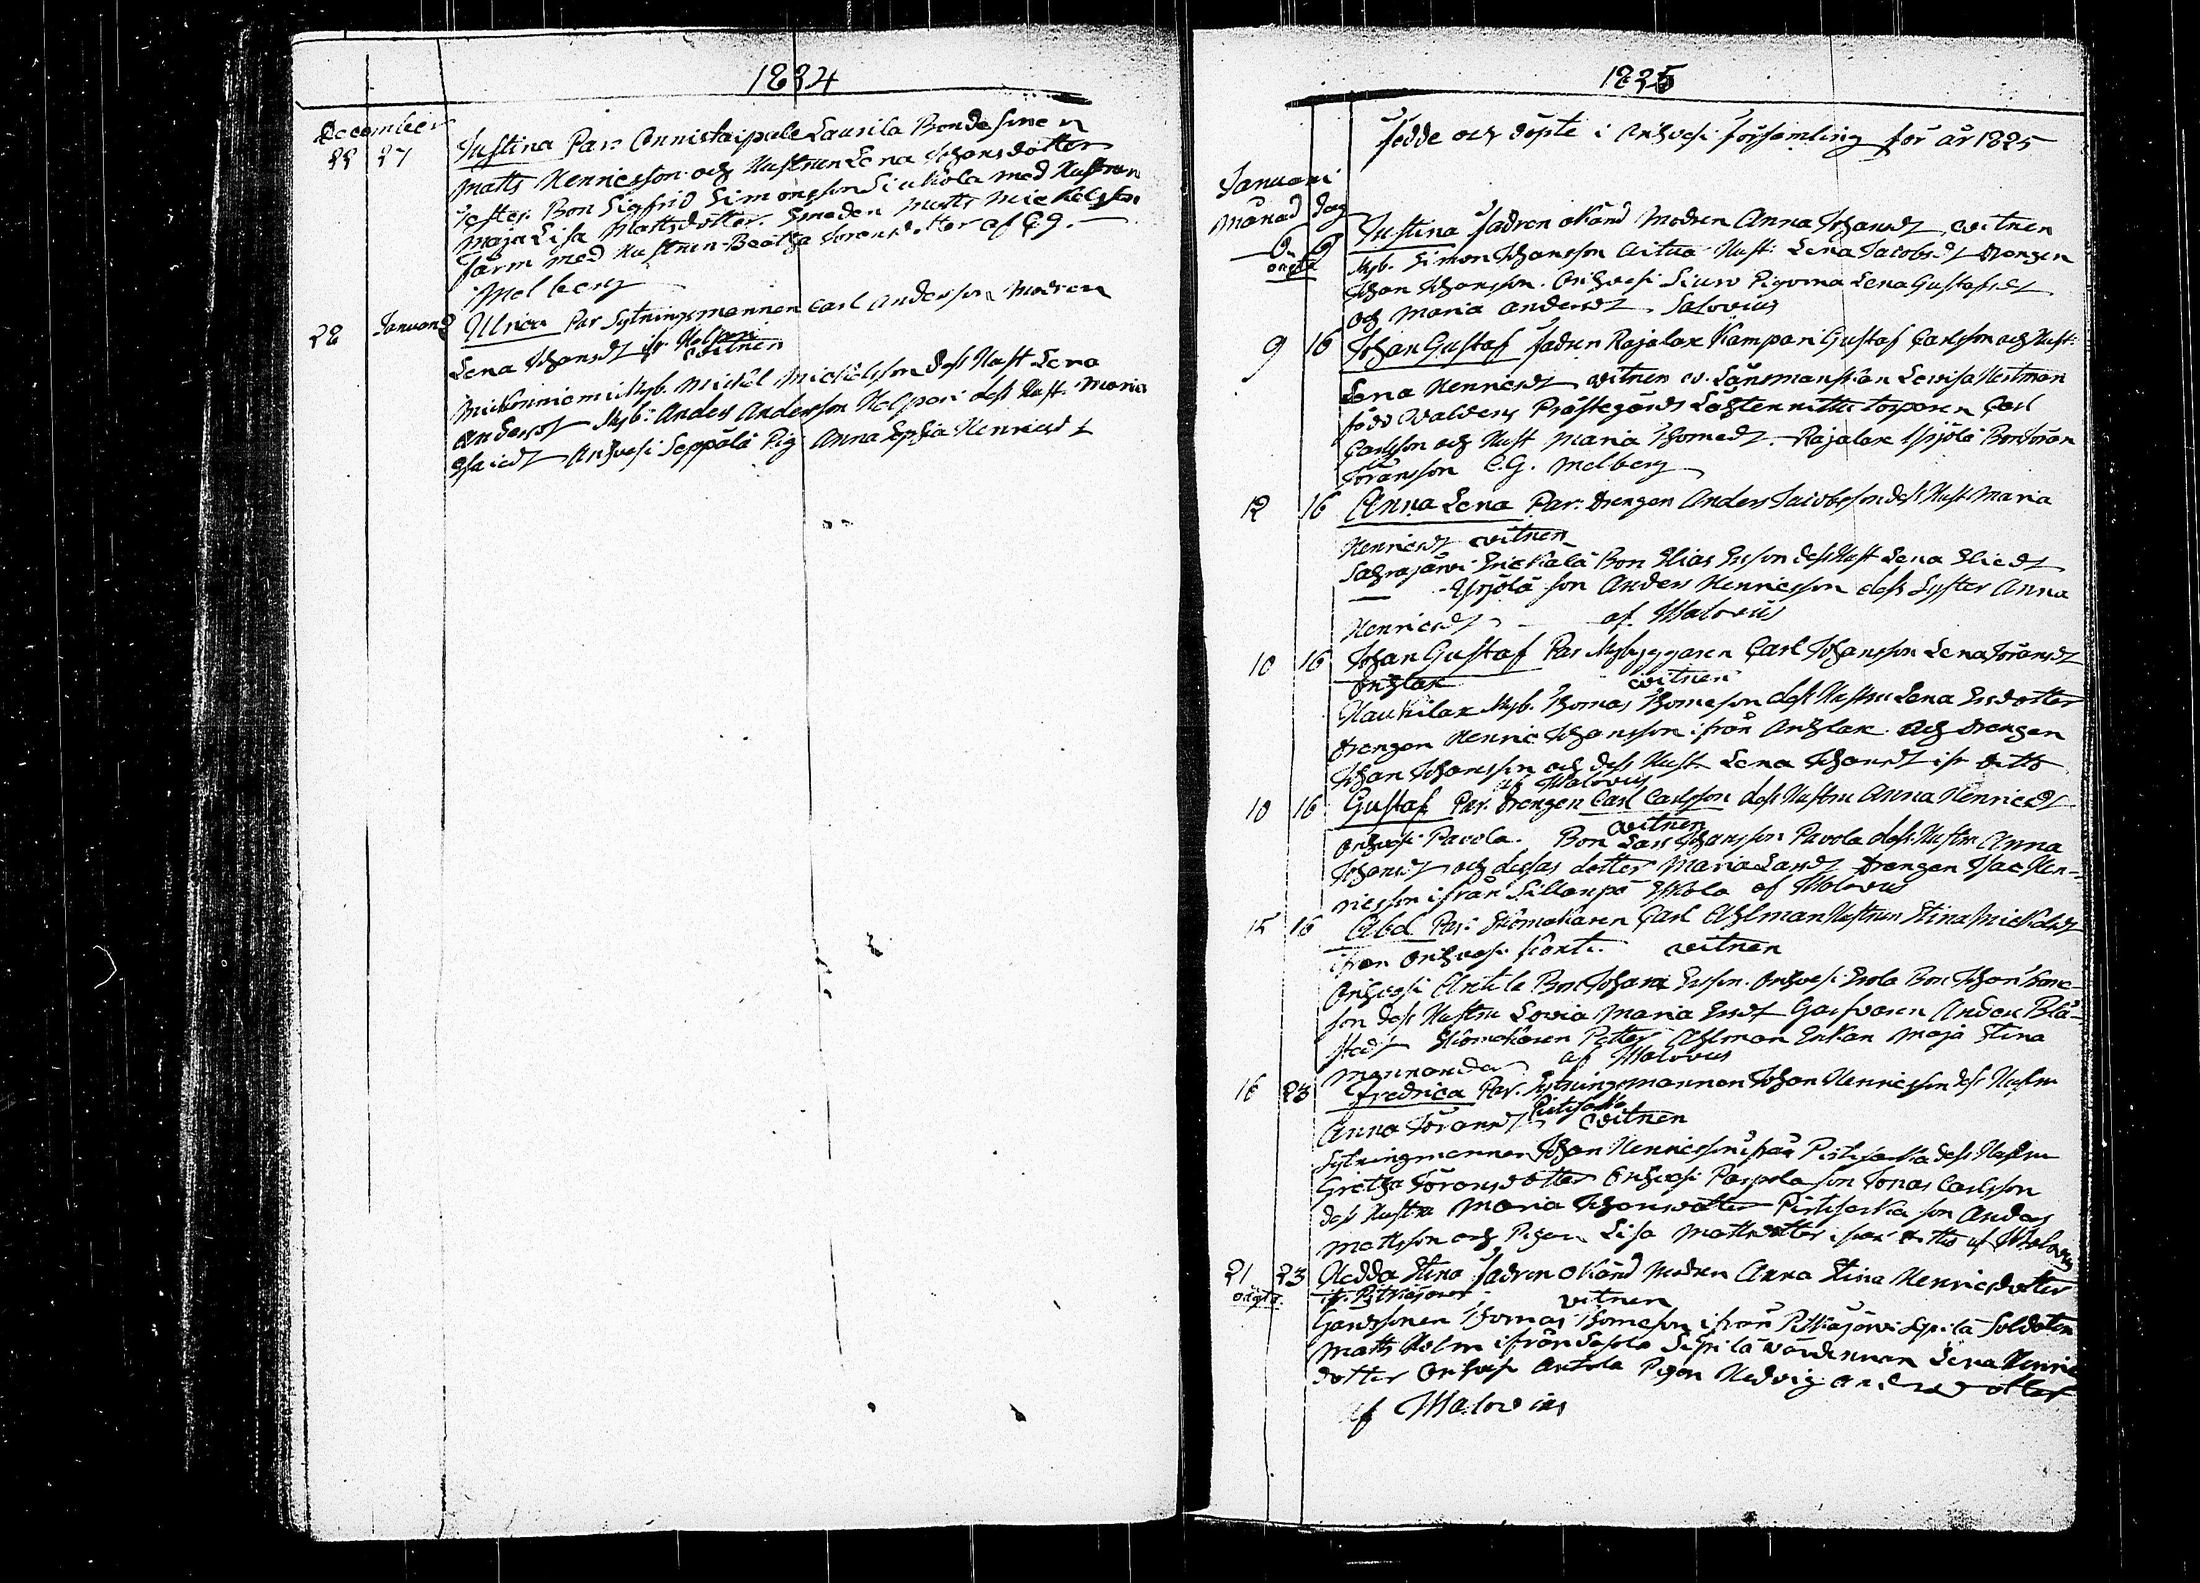 1824
December
22 27 Justina Par Onnistaipale Laurila Bondesonen
Matts Henricsson och Hustrun Lena Johansdotter
Test: Bon Sigfrid Simonsson Siukola med Hustrun
Maja Lisa Mattsdotter. Smeden Matts Mickelsson
Färm med Hustrun Beatha Göransdotter af C G.
Melberg
28 Januari 2 Ulrica Par Sytningsmannen Carl Andersson Modren
Lena Johansdr ifr Helpari
witnen
Nyb. Mickel Mickelsson dess Hust Lena
Andersdr Nyb: Anders Andersson Helpari dess Hust. Maria
Esaiedr Anhvesi Seppälä Pig: Anna Sophia Henricsdr
1825
Födde och döpte i Anhvesi Församling för år 1825
Januari
månad dag
6 9 Justina Fadren okänd Modren Anna Johansdr witnen
oägta Nyb. Simon Johansson Hust: Lena Jacobsdr Drengen
Johan Johansson. Anhvesi Siuro Pigorna Lena Gustafsdr
och Maria Andersdr Salovius
9 16 Johan Gustaf Fadren Rajalax Kampari Gustaf Carlsson och Hust:
Lena Henricsdr witnen Länsmanskan Lovisa Hertman
född Walberg Prästegårds torparen Carl
Carlsson och Hust Maria Thomedr. Rajalax Yrjölä Bon Göran
Göransson C. G. Melberg
12 16 Anna Lena Par: Drengen Anders Jacobsson dess Hust Maria
Henricsdr witnen
Sahrajärvi Erickala Bon Elias Ersson dess Hust Lena Eliedr
— Yrjölä son Anders Henricsson dess Syster Anna
Henricsdr af Malovius
10 16 Johan Gustaf Par Nybyggaren Carl Johansson Lena Göransdr
Anhlax witnen
Haukilax Nyb. Thomas Thomesson dess Hustru Lena Ersdotter
Drengen Henric Johansson ifrån Anhlax och Drengen
Johan Johansson och dess Hust. Lena Johansdr ifr ditto
af Malovius
10 16 Gustaf Par. Drengen Carl Carlsson dess Hustru Anna Henricsdr
witnen
Anhvesi Pavola. Bon Lars Johansson Pavola dess Hustru Anna
Johansdr och dessas dotter Maria Larsdr Drengen Isac Hen-
ricsson ifrån Sillanpä Yskola af Malovius
15 16 Abel Par: Skomakaren Carl Ahlman Hustrun Stina Mickelsdr
ifrån Anhvesi Kortt. witnen
Anhvesi Antila Bon Johan Ersson. Anhvesi Erola Bon Johan
son dess Hustru Lovisa Maria Ersdr Garfvaren Anders Blä-
stedt Skomakaren Petter Ahlman Enkan Maja Stina
Mannander af Malovius
16 23 Fredrica Par. Sytningsmannen Johan Henricsson dess Hustru
Anna Göransdr Pistesarka witnen
Sytningmannen Johan Henricsson ifrån Pistesarka dess Hustru
Gretha Göransdotter Anhvesi Parpola son Jonas Carlsson
dess Hustru Maria Johansdotter Pistesarka son Anders
Mattsson och Pigan Lisa Mattsdotter ifrån ditto af Malovius
21 23 Hedda Stina Fadren okänd Modren Anna Stina Henricsdotter
oägta. ifr. Pitkäjärvi witnen
Gårdssonen Thomas Thomesson ifrån Pitkäjärvi Seppilä Soldaten
Matts Holm ifrån Sepilä Värdinnan Lena Henrics
dotter Anhvesi Antola Pigan Hedvig Andersdotter
af Malovius